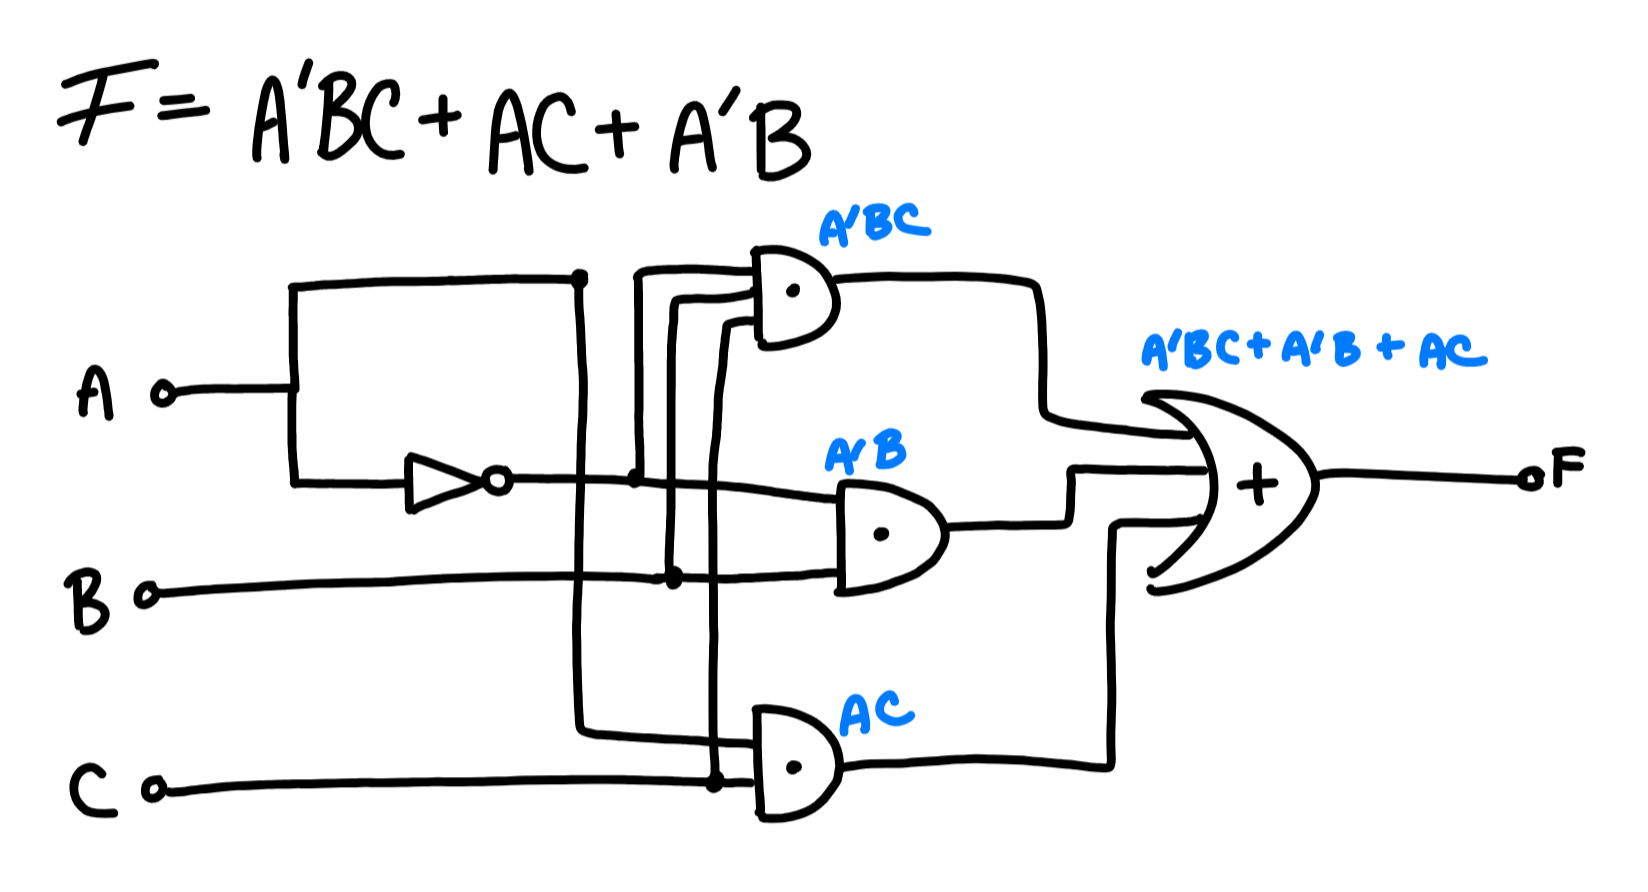 F = A'BC + AC + A'B
A'BC
A'BC + A'B + AC
A
A'B
F
B
AC
C